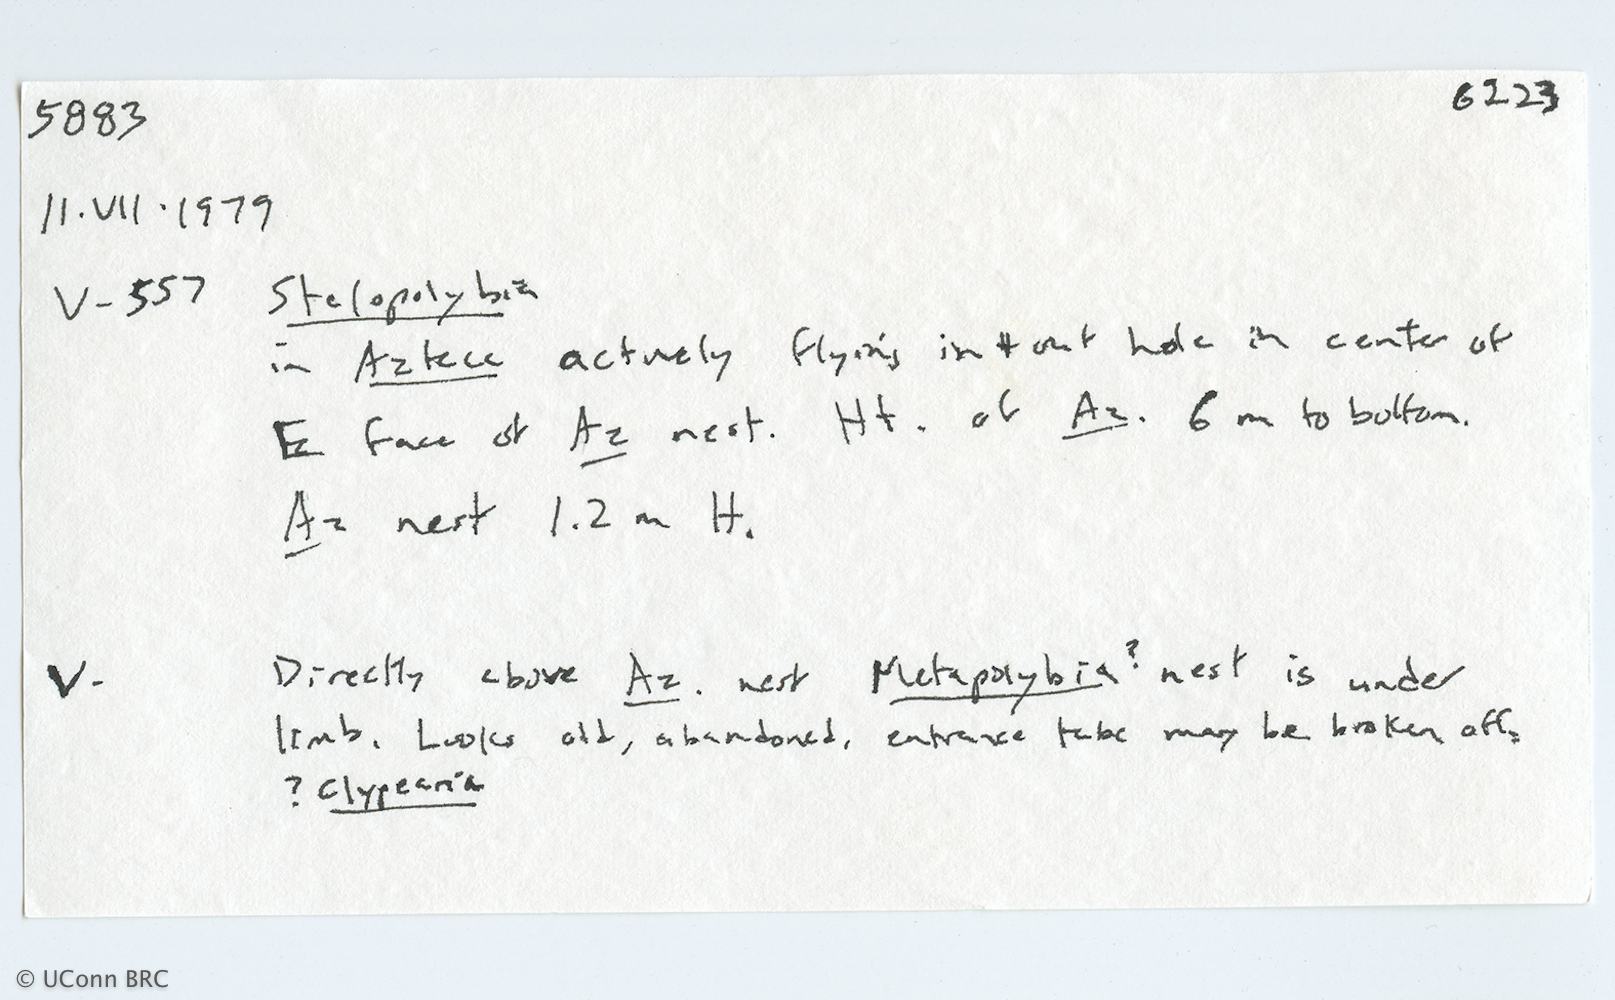 5883
6223
11.VII.1979
V-557 Stelopolybia
in Azteca actively flying in + out hole in center of
E face of Az nest. Ht. of Az. 6 m to bottom.
Az nest 1.2 m H.
V- Directly above Az. nest Metapolybia? nest is under
limb. Looks old, abandoned, entrance tube may be broken off.
? Clypearia
© UConn BRC